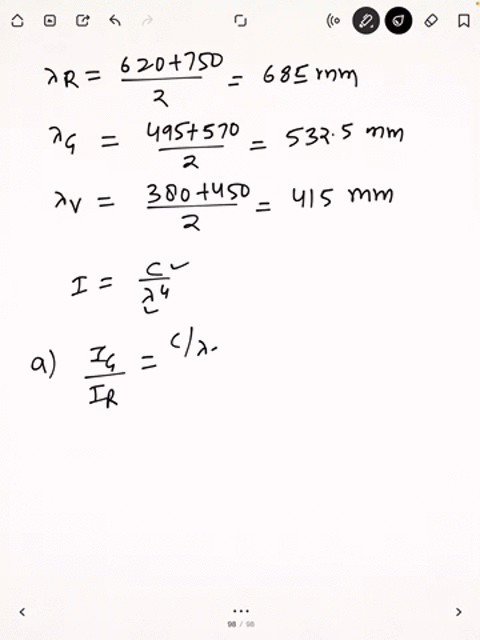 λR = 620+750/2 = 685 mm
λG = 495+570/2 = 532.5 mm
λV = 380+450/2 = 415 mm
I = C/λ⁴
a) IG/IR = C/λ
98 / 98